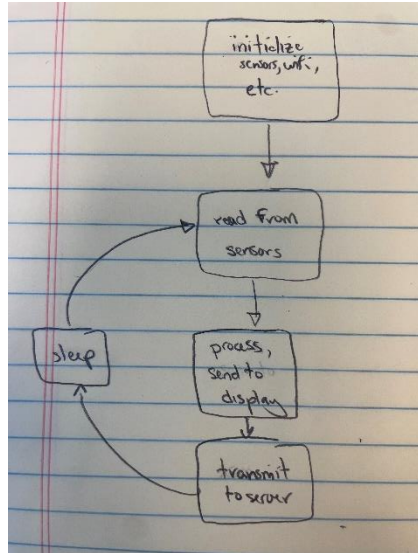 initialize
sensors, wifi,
etc.
read from
sensors
sleep
process,
send to
display
transmit
to server